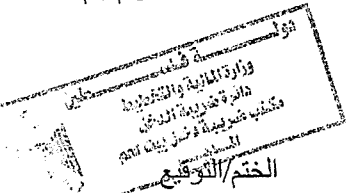 دولـــــة فلســـــطين
وزارة المالية والتخطيط
دائرة ضريبة الدخل
مكتب ضريبة دخل بيت لحم
الختم/التوقيع